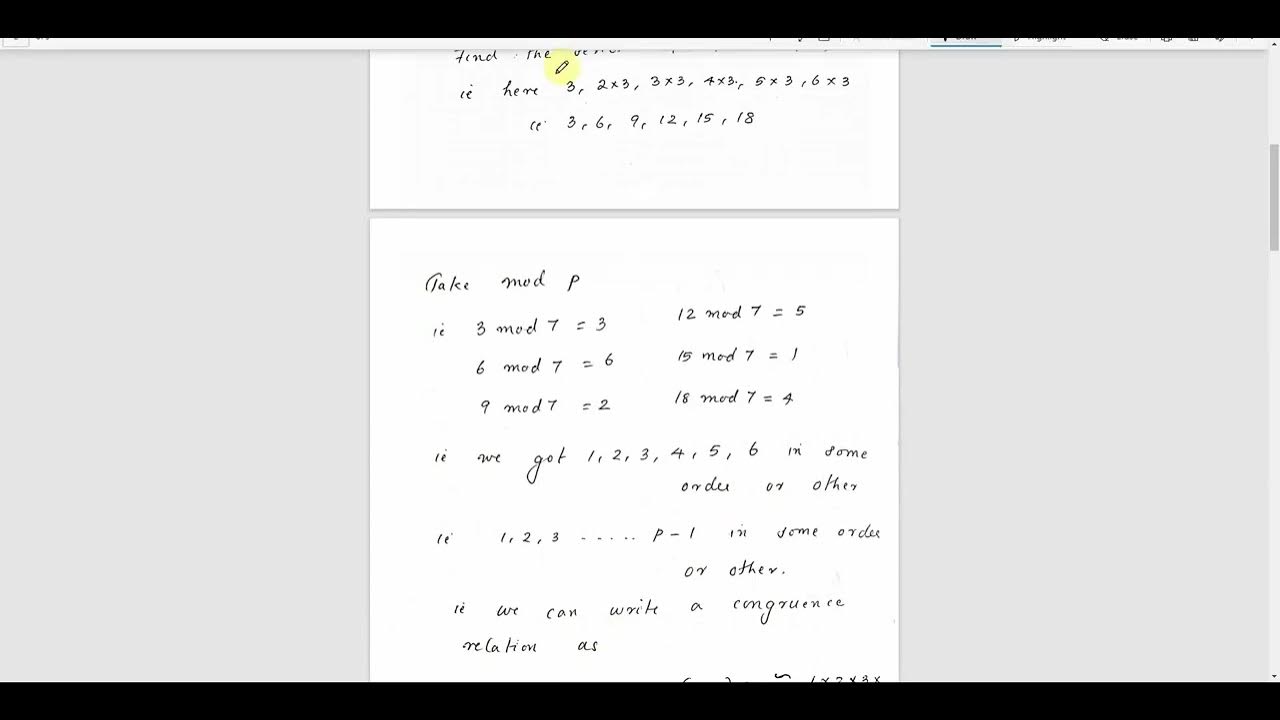 Find the
ie here 3, 2×3, 3×3, 4×3, 5×3, 6×3
ie 3, 6, 9, 12, 15, 18
Take mod p
ie 3 mod 7 = 3 12 mod 7 = 5
6 mod 7 = 6 15 mod 7 = 1
9 mod 7 = 2 18 mod 7 = 4
ie we got 1, 2, 3, 4, 5, 6 in some
order or other
ie 1, 2, 3 ..... p-1 in some order
or other.
ie we can write a congruence
relation as